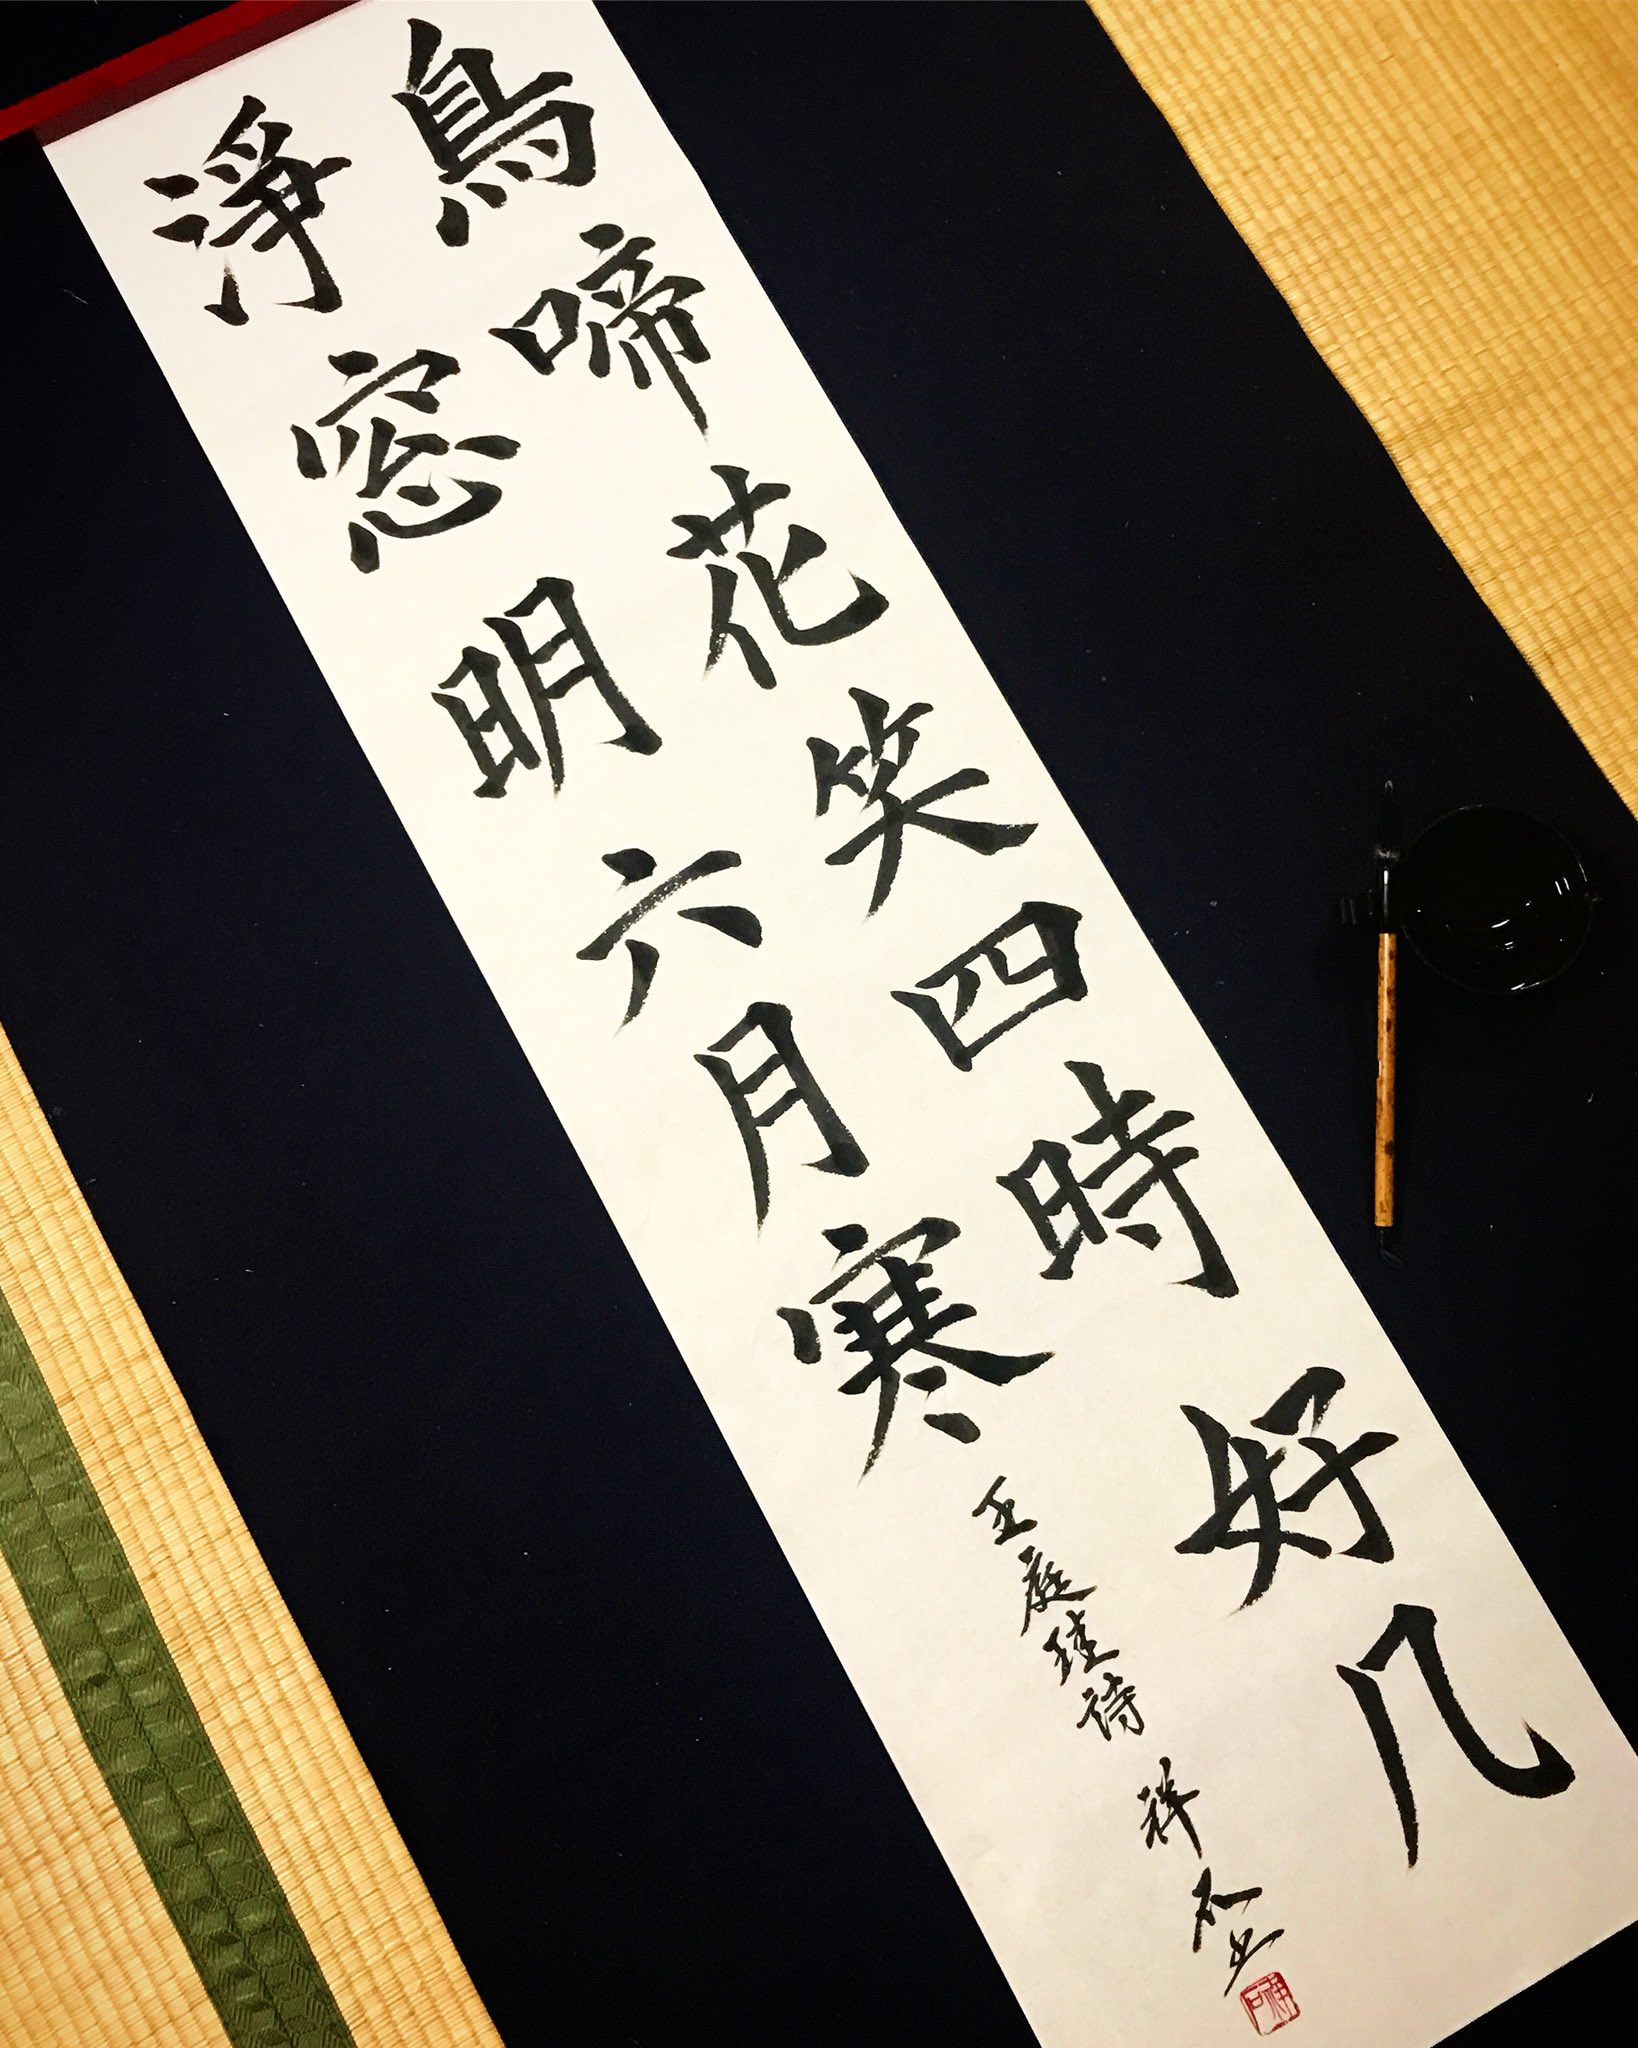 鳥啼花笑四時好几
淨窓明六月寒
王庭珪詩 祥石書